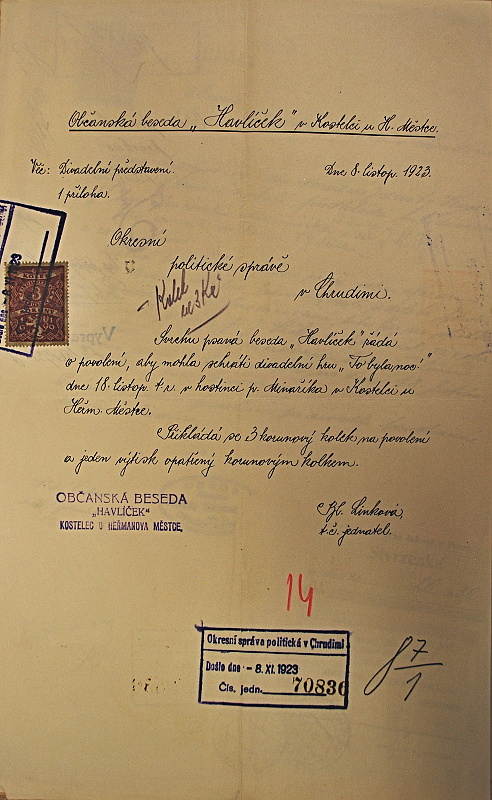 Občanská beseda „Havlíček" v Kostelci u H. Městce.
Věc: Divadelní představení.
Dne 8. listop. 1923.
1 příloha.
Okresní
politické správě
v Chrudimi.
Kolek
Svrchu psavá beseda „Havlíček" žádá
o povolení, aby mohla sehráti divadelní hru „To byla noc."
dne 18. listop. t. r. v hostinci p. Minaříka v Kostelci u
Heřm. Městce.
Přikládá se 3 korunový kolek na povolení
a jeden výtisk opatřený korunovým kolkem.
OBČANSKÁ BESEDA
„HAVLÍČEK"
KOSTELEC U HEŘMANOVA MĚSTCE,
Bl. Linková,
t. č. jednatel.
14
Okresní správa politická v Chrudimi
Došlo dne - 8. XI. 1923
Čís. jedn. 70836
8 7/1